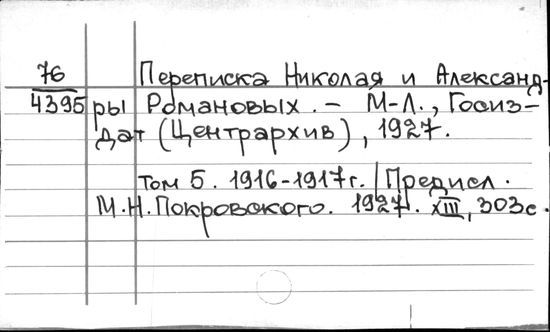 76 Переписка Николая и Александ-
4395 ры Романовых. – М-Л., Госиз-
дат (Центрархив), 1927.
Том 5. 1916-1917г. / Предисл.
М.Н.Покровского. 1927. XIII, 303с.